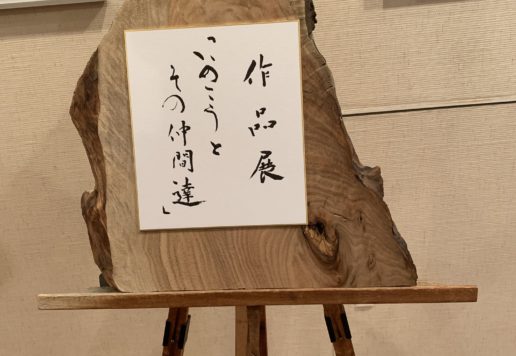 作品展
「いのこうと
その仲間達」